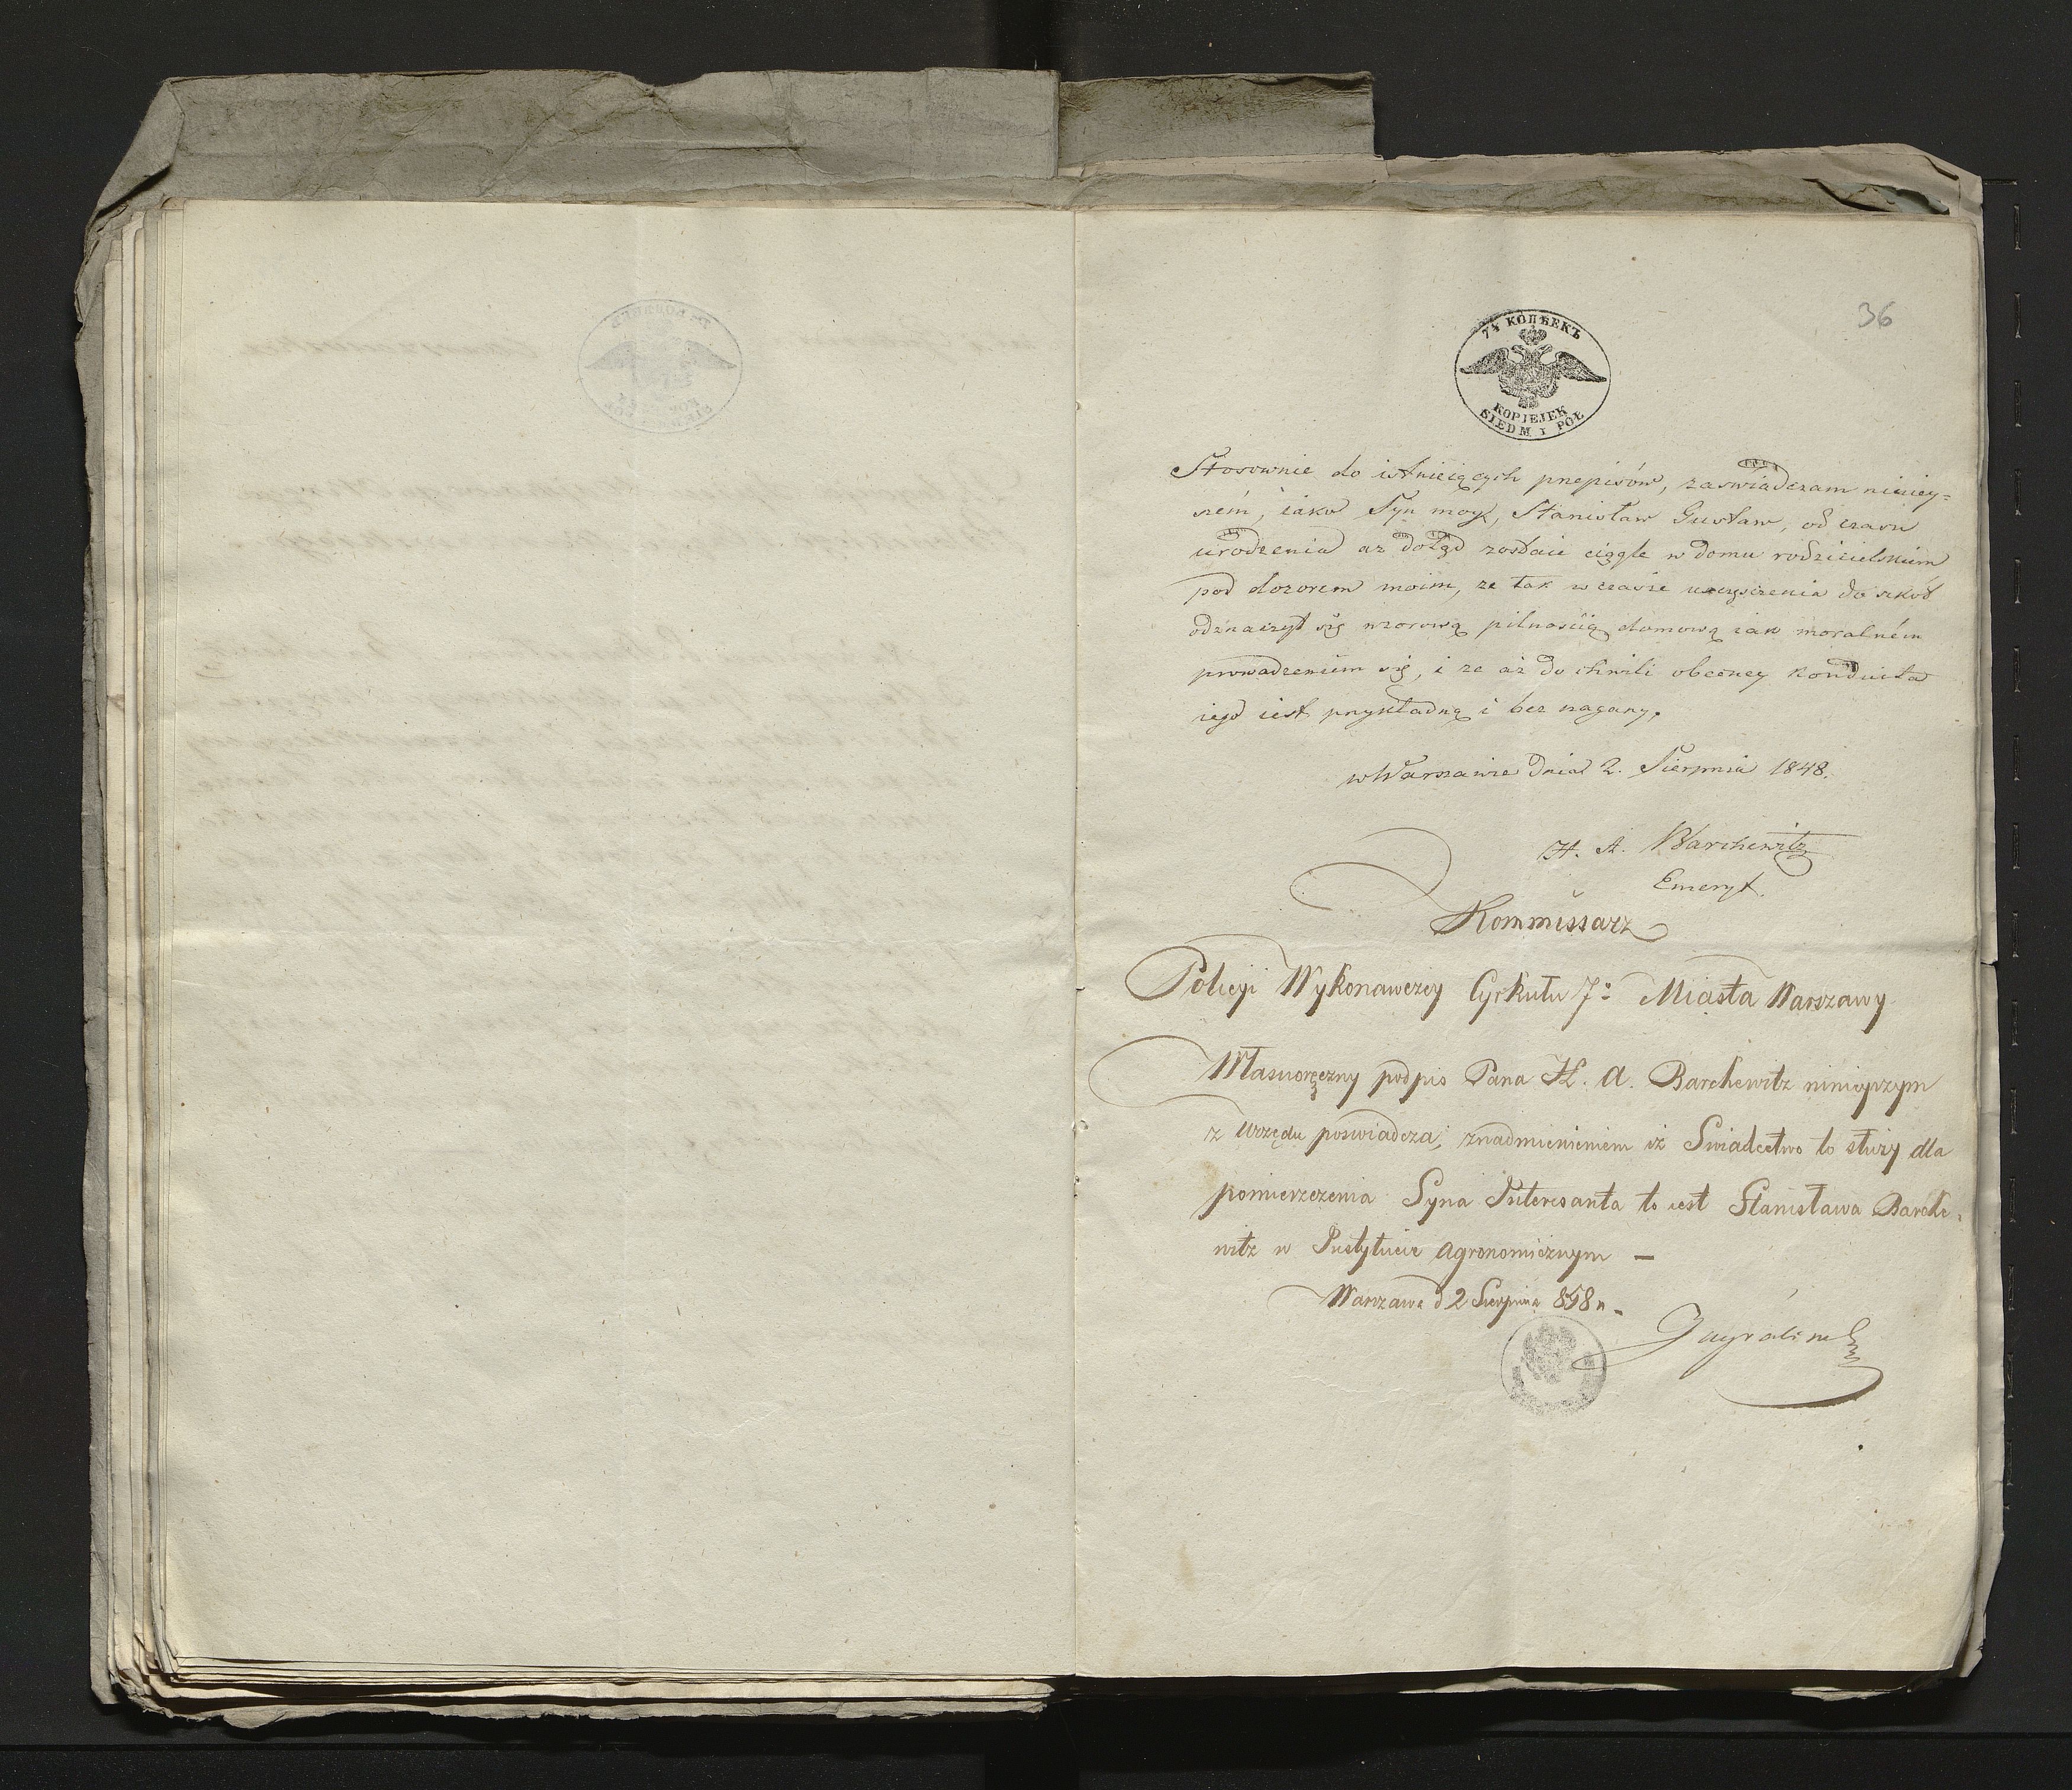 36
7½ КОПѢЕКЪ
KOPIEJEK
SIEDM I PÓŁ
Stosownie do istnieiących przepisów, zaświadczam niniey=
szém, iako Syn moy, Stanisław Gustaw, od czasu
urodzenia aż dotąd zostaie ciągle w domu rodzicielskim
pod dozorem moim, że tak w czasie uczęszczenia do szkół
odznaczył się wzorową pilnością domową iak moralném
prowadzeniem się, i że aż do chwili obecney konduita
iego iest przykładną i bez nagany.
w Warszawie dnia 2. Sierpnia 1848.
H. A. Barchewitz
Emeryt.
Kommissarz
Policyi Wykonawczey Cyrkułu 7o Miasta Warszawy
Własnoręczny podpis Pana H. A. Barchewitz ninieyszym
z urzędu poswiadcza, z nadmienieniem iż Swiadectwo to służy dla
pomieszczenia Syna Interesanta to iest Stanisława Barche-
witz w Instytucie Agronomicznym —
Warszawa d 2 Sierpnia 848 r.